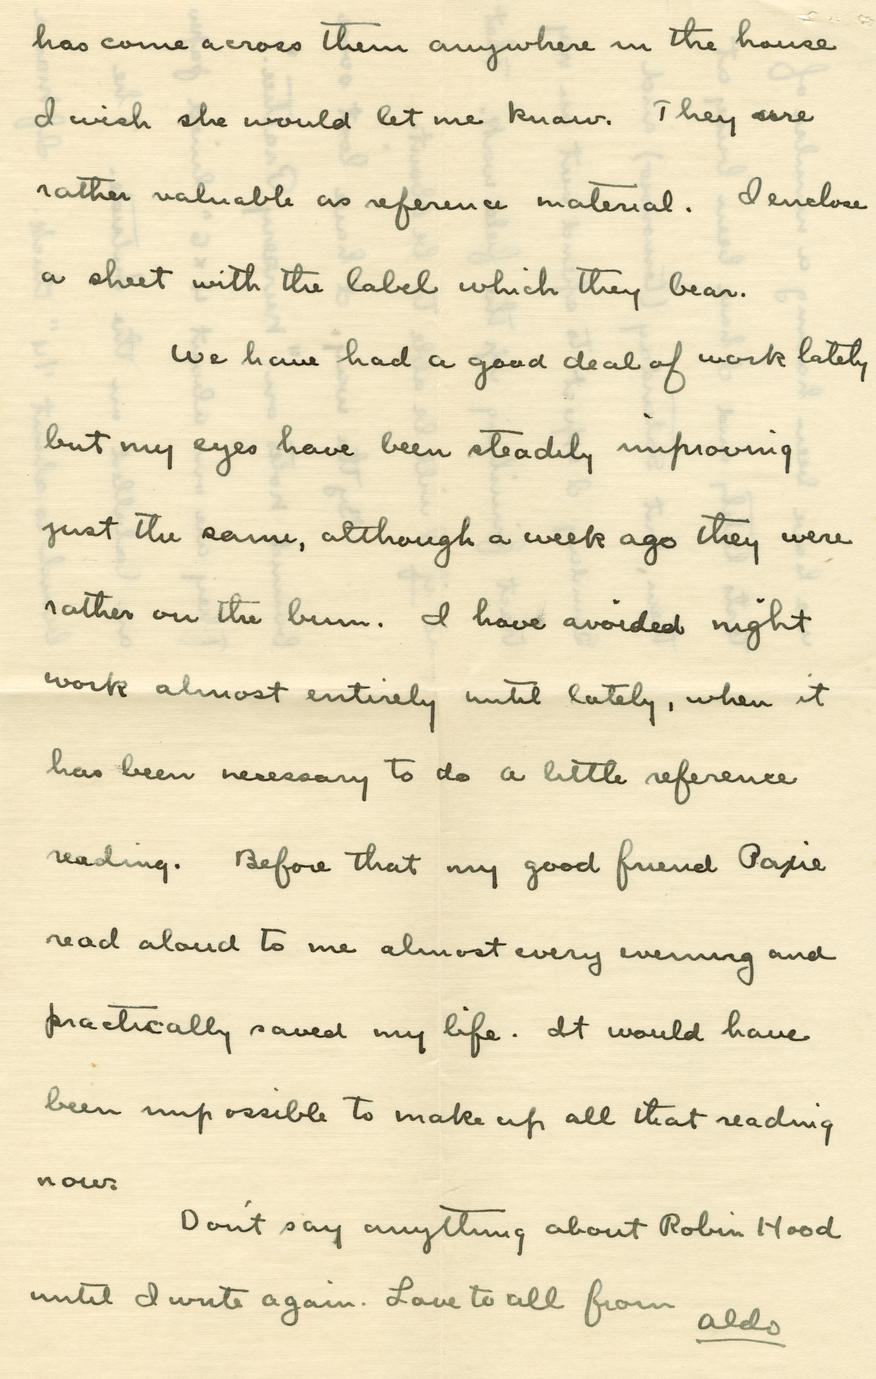 has come across them anywhere in the house
I wish she would let me know. They are
rather valuable as reference material. I enclose
a sheet with the label which they bear.
We have had a good deal of work lately
but my eyes have been steadily improving
just the same, although a week ago they were
rather on the bum. I have avoided night
work almost entirely until lately, when it
has been necessary to do a little reference
reading. Before that my good friend Paxie
read aloud to me almost every evening and
practically saved my life. It would have
been impossible to make up all that reading
now.
Don't say anything about Robin Hood
until I write again. Love to all from
Aldo